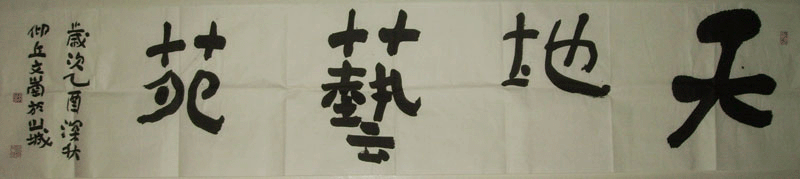 天地藝苑
歲次乙酉深秋
仰丘文嵩於山城